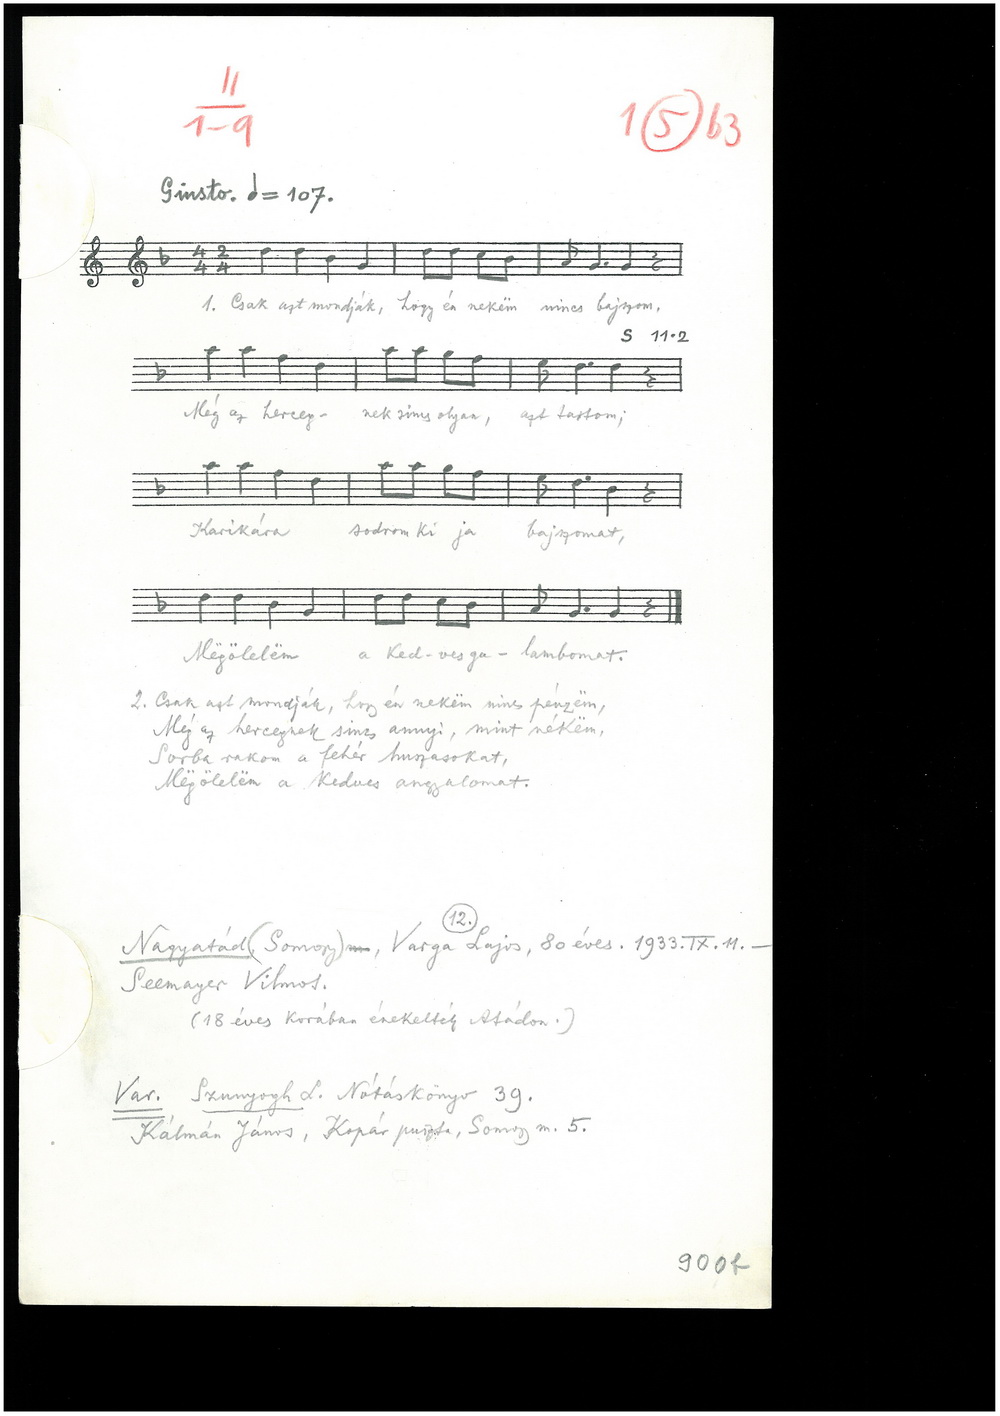 II
1-9
1 (5) b3
Giusto. = 107.
1. Csak aszt mondják, hogy én nekëm nincs bajszom,
S 11·2
Még az herceg- nek sincs olyan, aszt tartom;
Karikára sodrom ki ja bajszomat,
Mëgölelëm a ked-ves ga- lambomat.
2. Csak aszt mondják, hogy én nekëm nincs pénzëm,
Még az hercegnek sincs annyi, mint nékëm,
Sorba rakom a fehér huszasokat,
Mëgölelëm a kedves angyalomat.
12.
Nagyatád (Somogy), Varga Lajos, 80 éves. 1933. IX. 11. —
Seemayer Vilmos.
(18 éves korában énekelték Atádon.)
Var. Szunyogh L. Nótáskönyv 39.
Kálmán János, Kopár puszta, Somogy m. 5.